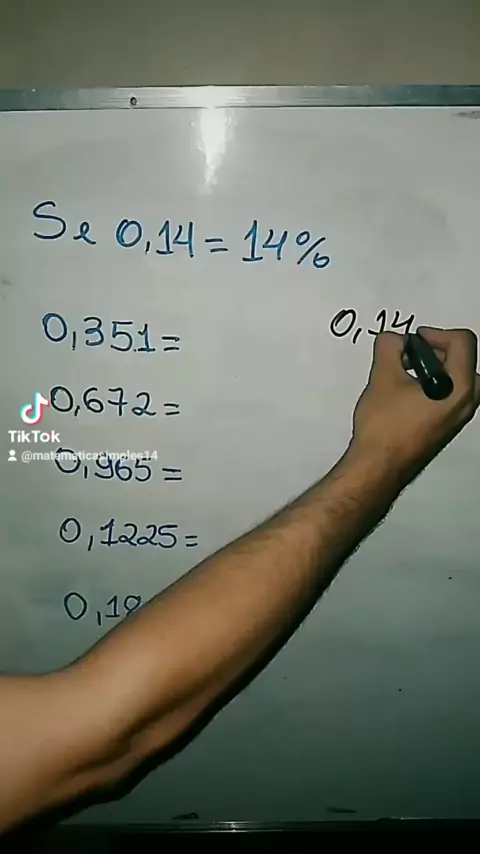 Se 0,14 = 14%
0,14
0,351 =
0,672 =
TikTok
@matematicasimples14
0,965 =
0,1225 =
0,18